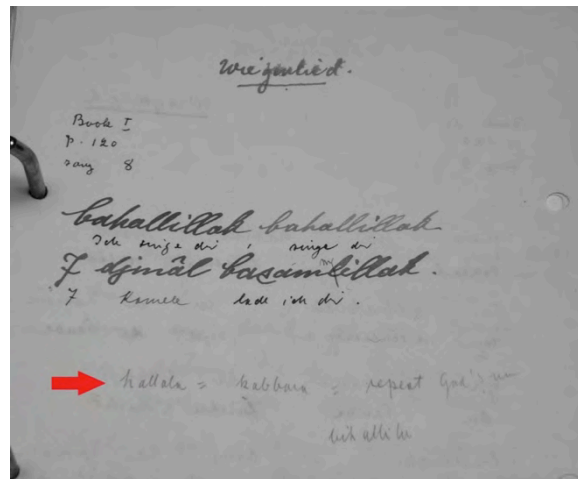 Wiegenlied.
Book I
p. 120
song 8
bahallillak bahallillak
Ich singe dir, singe dir
7 djimâl basamlillak.
7 Kamele lade ich dir.
hallala = kabbara = repeat God's